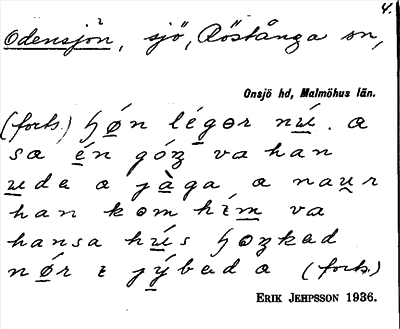 4.
Odensjön, sjö, Röstånga sn,
Onsjö hd, Malmöhus län.
(forts.) hǿn légər nú. a
sa én góz va han
ude a jàga, a naur
han kom hím va
hansa hús hozkad
nǿr ɪ jýbəd a (forts.)
ERIK JEHPSSON 1936.